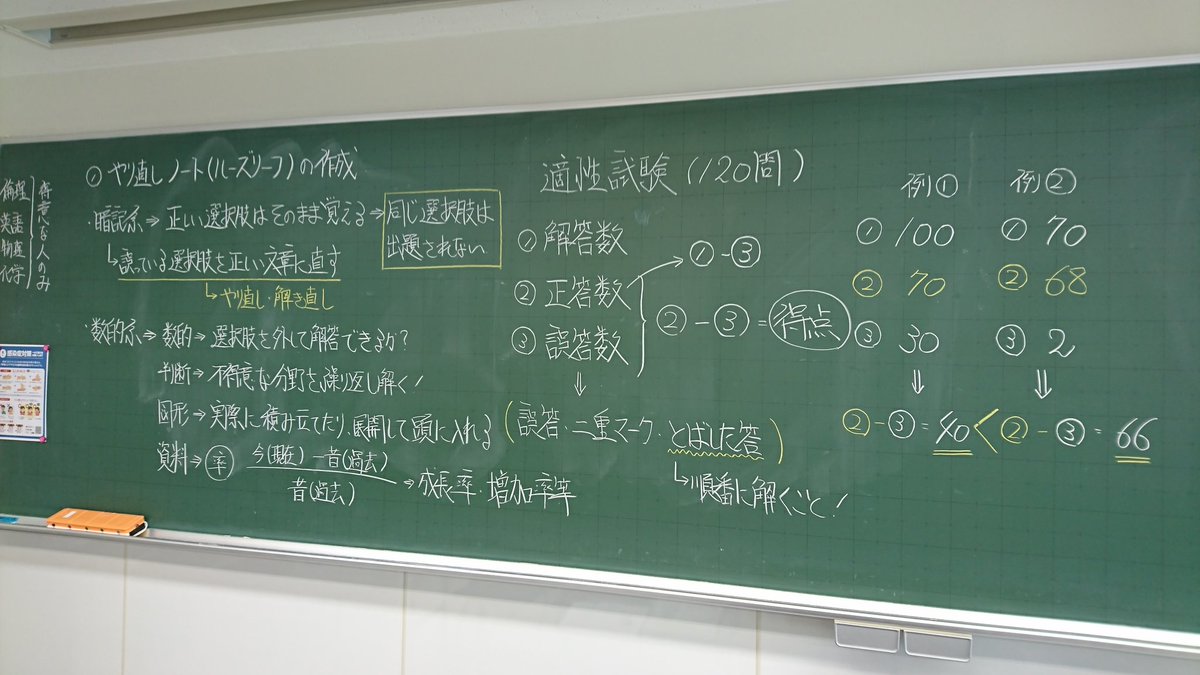 倫理
英語
物理
化学
得意な人のみ
① やり直しノート(ルーズリーフ)の作成
・暗記系⇒正しい選択肢はそのまま覚える⇒同じ選択肢は出題されない
↳誤っている選択肢を正しい文章に直す
↳やり直し・解き直し
・数的系⇒数的→選択肢を外して解答できるか?
判断→不得意な分野を繰り返し解く!
図形→実際に積み立てたり、展開して頭に入れる
資料→率 今(現在)-昔(過去)
昔(過去)
⇒成長率・増加率
感染症対策
適性試験(120問)
① 解答数
② 正答数
③ 誤答数
①-③
②-③=得点
⇓
(誤答・二重マーク・とばした答)
↳順番に解くこと!
例①
① 100
② 70
③ 30
⇓
②-③=40
<
例②
① 70
② 68
③ 2
⇓
②-③=66